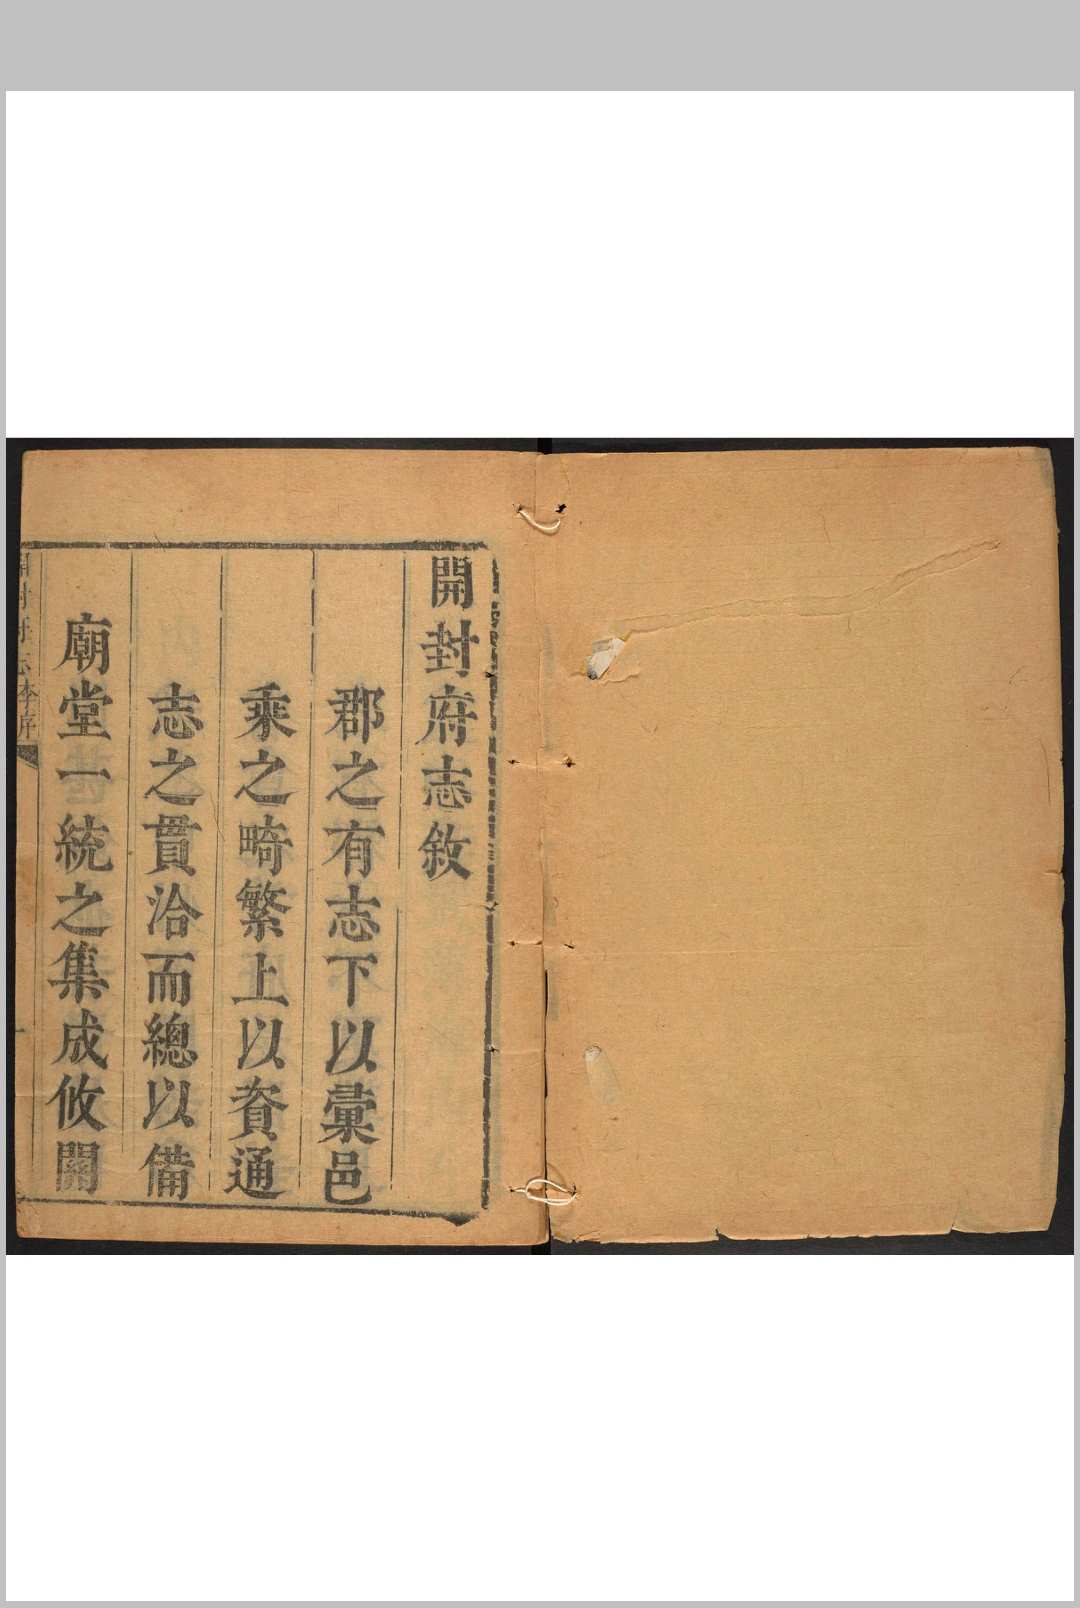 開封府志敘
郡之有志下以彙邑
乘之畸繁上以資通
志之貫洽而總以備
廟堂一統之集成攸關